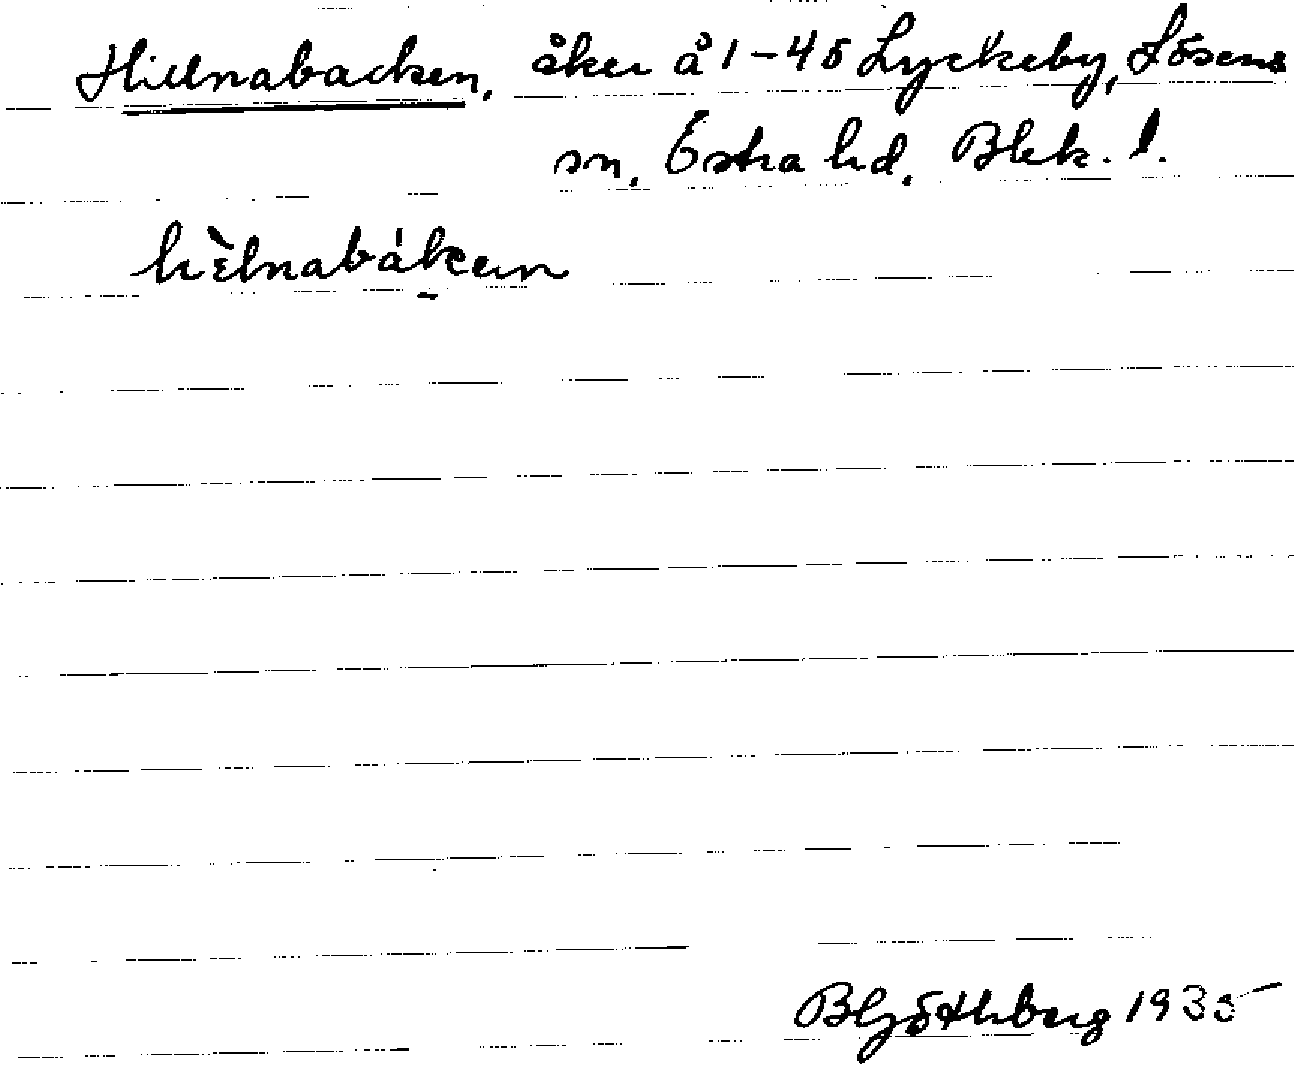 Hillnabacken, åker å 1-45 Lyckeby, Lösens
sn. Östra hd. Blek. l.
hὲlnabákan
BGöthberg 1935